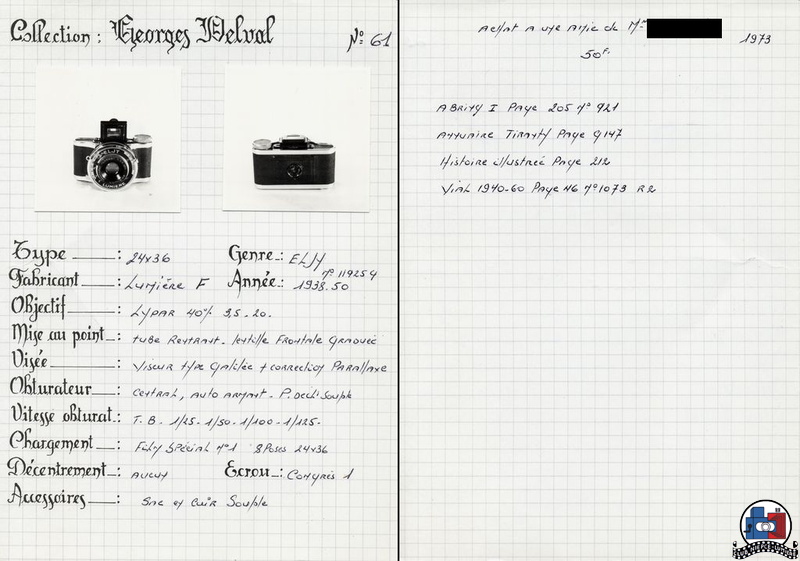 Collection : Georges Delval Nº 61
Type : 24x36 Genre : ELJY
nº 119254
Fabricant : Lumière F Année : 1938.50
Objectif : Lypar 40% 3,5 - 20.
Mise au point : tube Rentrant - lentille Frontale Graduée
Visée : Viseur type Galilée + correction Parallaxe
Obturateur : Central, Auto Armant - P. Décl! Souple
Vitesse obturat. : T. B. 1/25 - 1/50 - 1/100 - 1/125 -
Chargement : Film Spécial nº1 8 Poses 24x36
Décentrement : Aucun Ecrou : Congrès 1
Accessoires : Sac en Cuir Souple
Achat a une Amie de Mme
1973
50F.
Abring I Page 205 nº 921
Annuaire Page 9147
Histoire illustrée Page 212
Vial 1940-60 Page 46 nº1073 R2